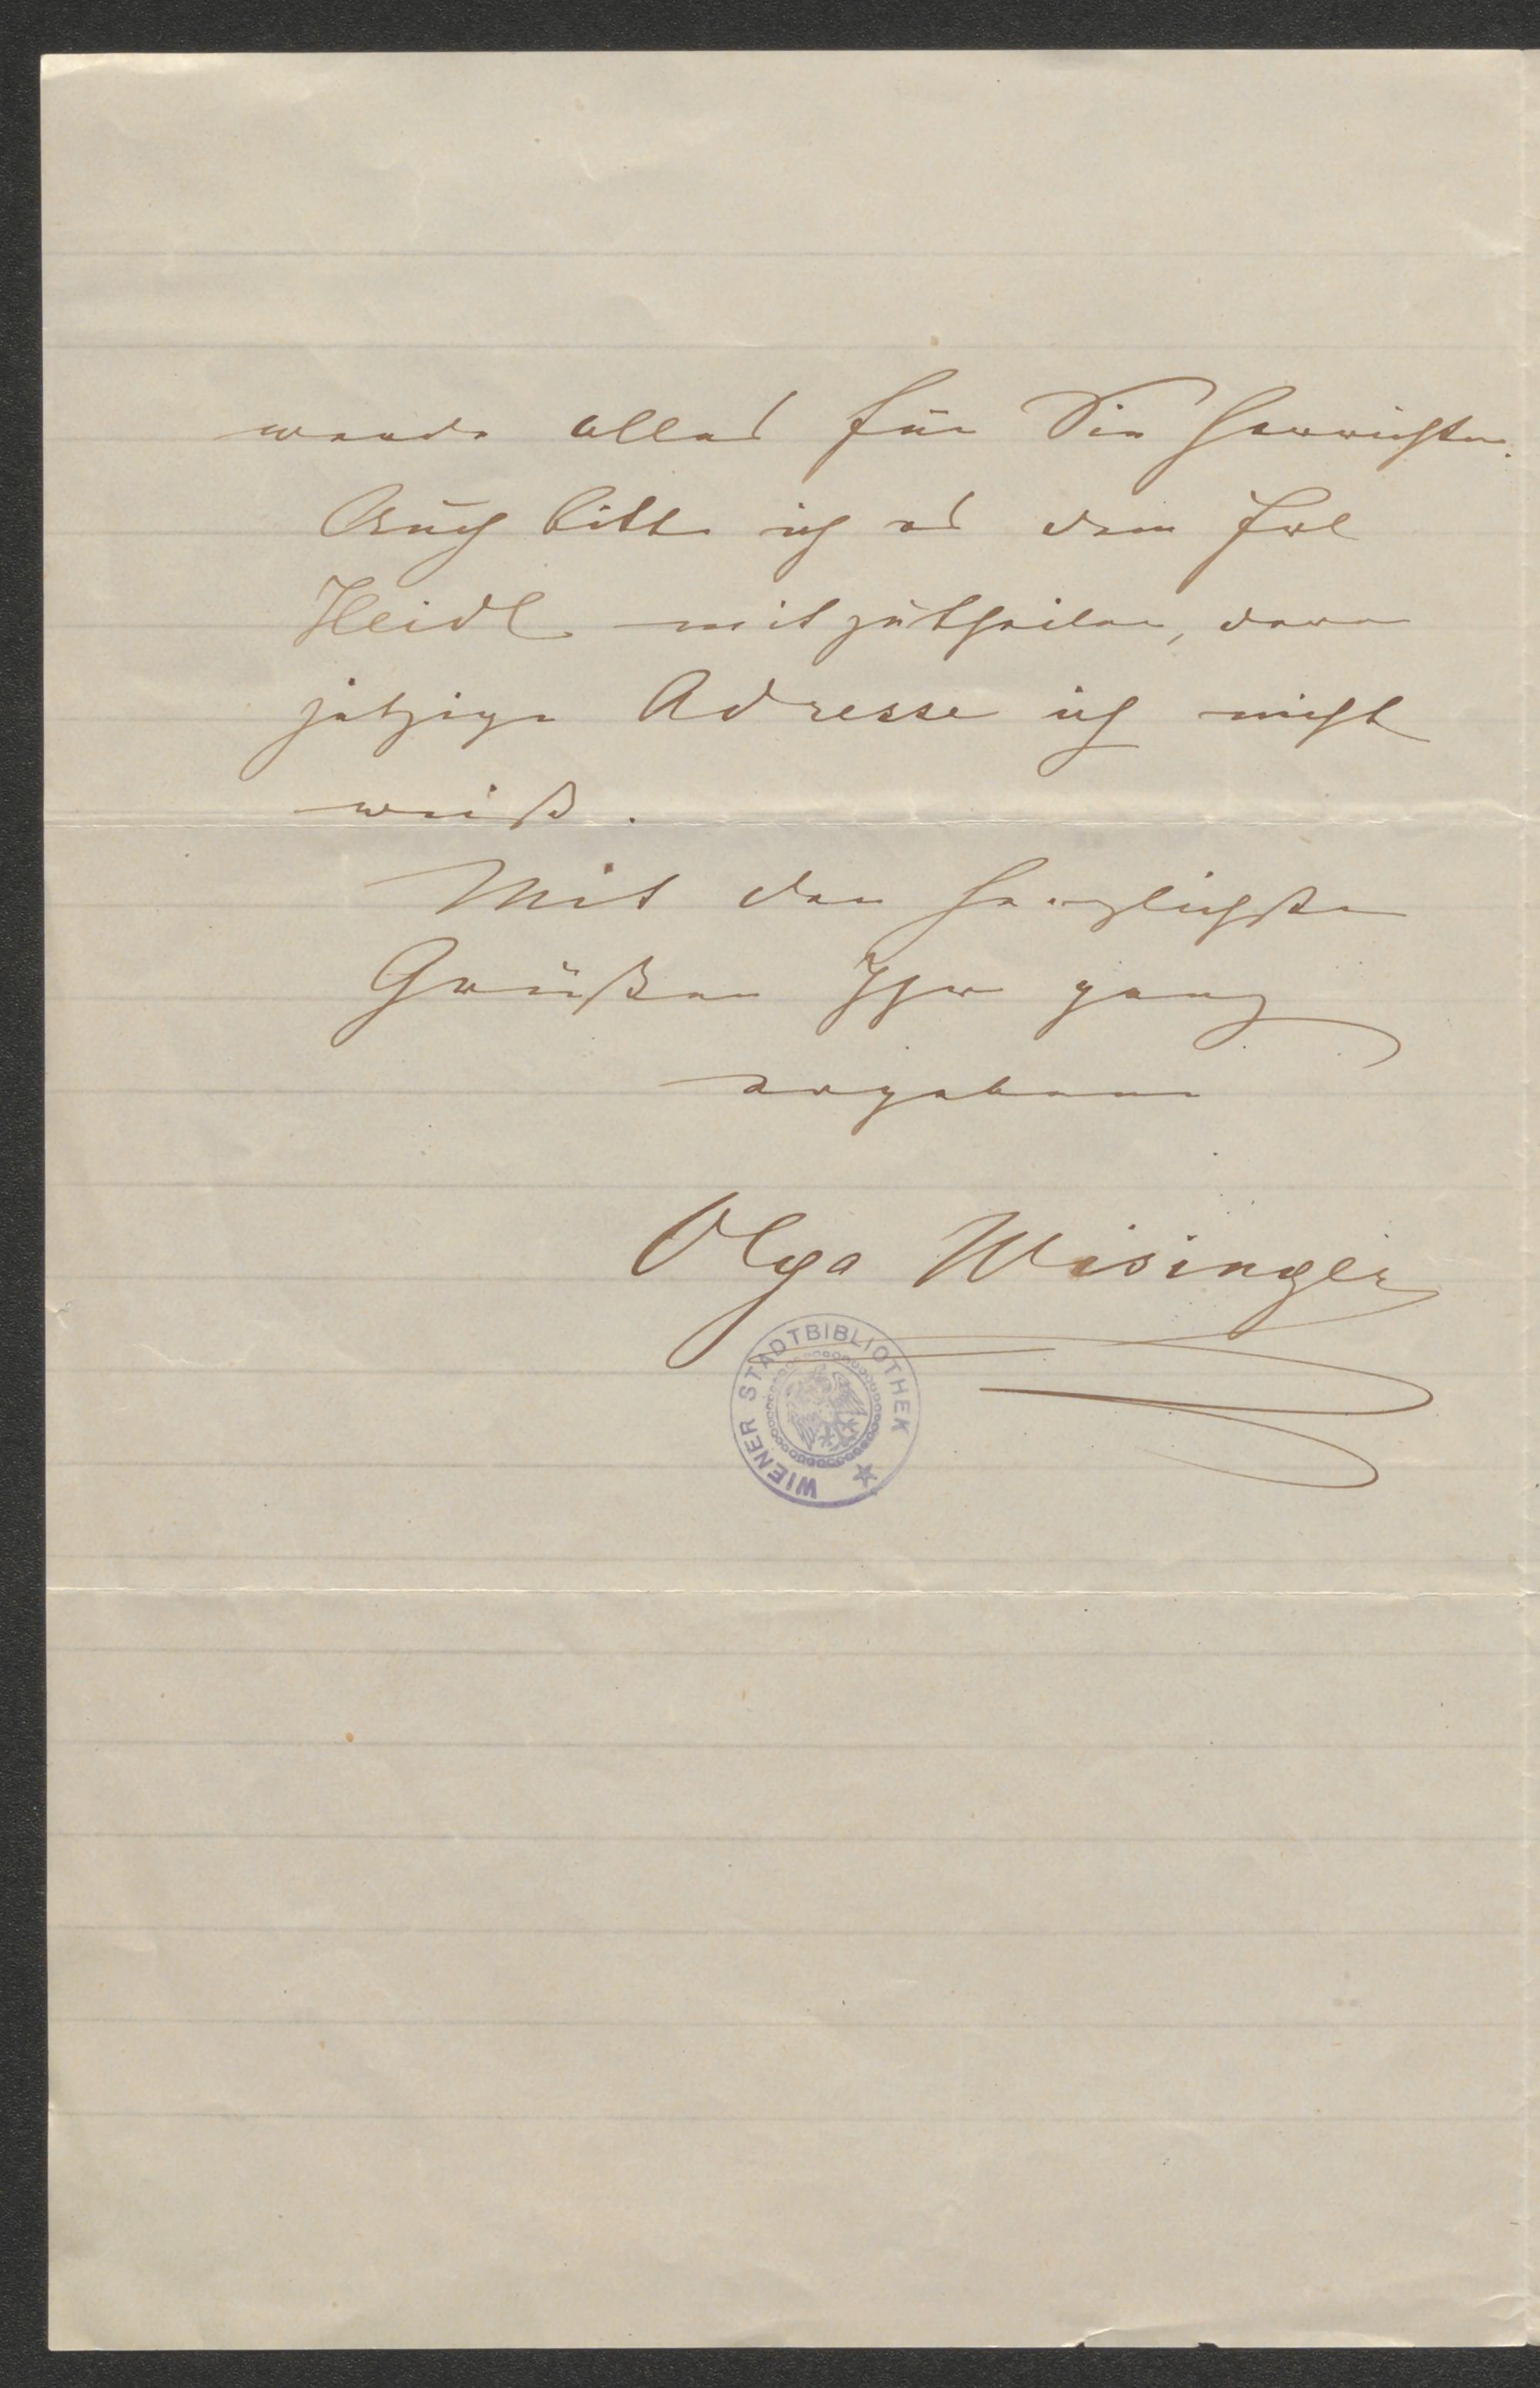 werde alles für Sie herrichten.
Auch bitte ich es dem Frl
Heidl mitzutheilen, deren
jetzige Adresse ich nicht
weiß.
Mit den herzlichsten
Grüßen Ihre ganz
ergebene
Olga Wisinger
WIENER STADTBIBLIOTHEK